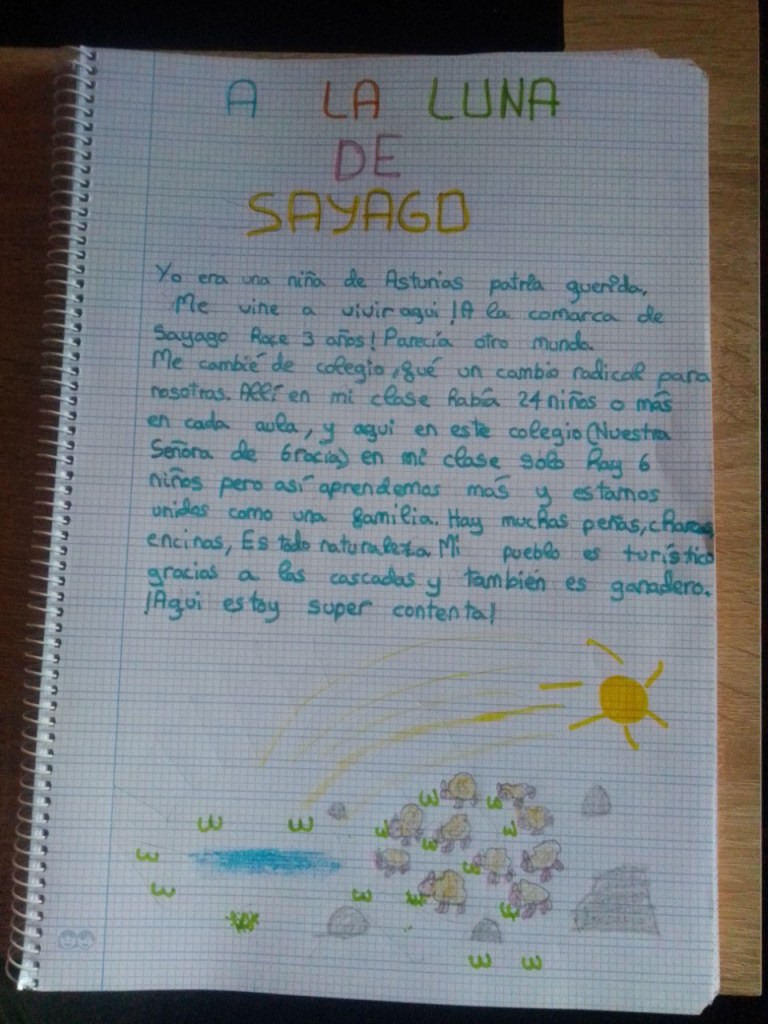 A LA LUNA
DE
SAYAGO
Yo era una niña de Asturias patria querida,
Me vine a vivir aqui ¡A la comarca de
Sayago hace 3 años! Parecía otro mundo
Me cambié de colegio, fué un cambio radical para
nosotros. Allí en mi clase habá 24 niños o más
en cada aula, y aqui en este colegio (Nuestra
Señora de Gracia) en mi clase solo hay 6
niños pero así aprendemos más y estamos
unidos como una familia. Hay muchas peñas, charcas
encinas, Es todo naturaleza Mi pueblo es turístico
gracias a las cascadas y también es ganadero.
¡Aqui estoy super contenta!